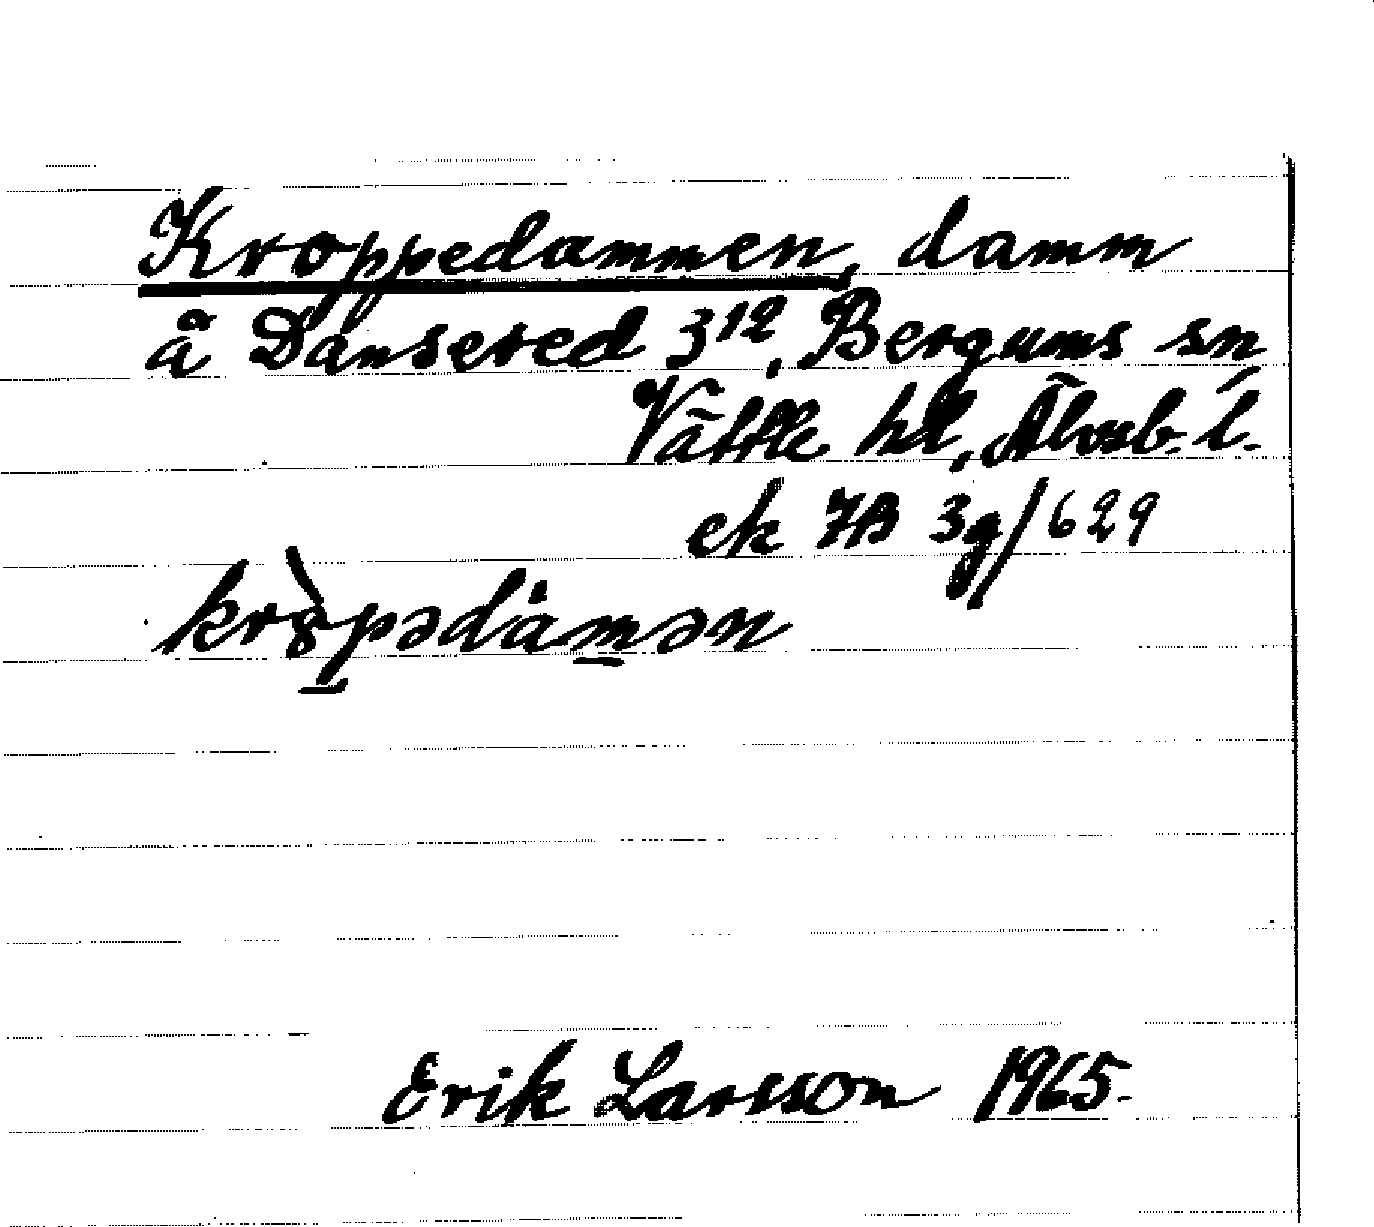 Kroppedammen, damm
å Dansered 3¹², Bergums sn
Vättle hd, Älvsb. l.
ek 7B 3g/629
kr8̀pədȧmən
Erik Larsson 1965.